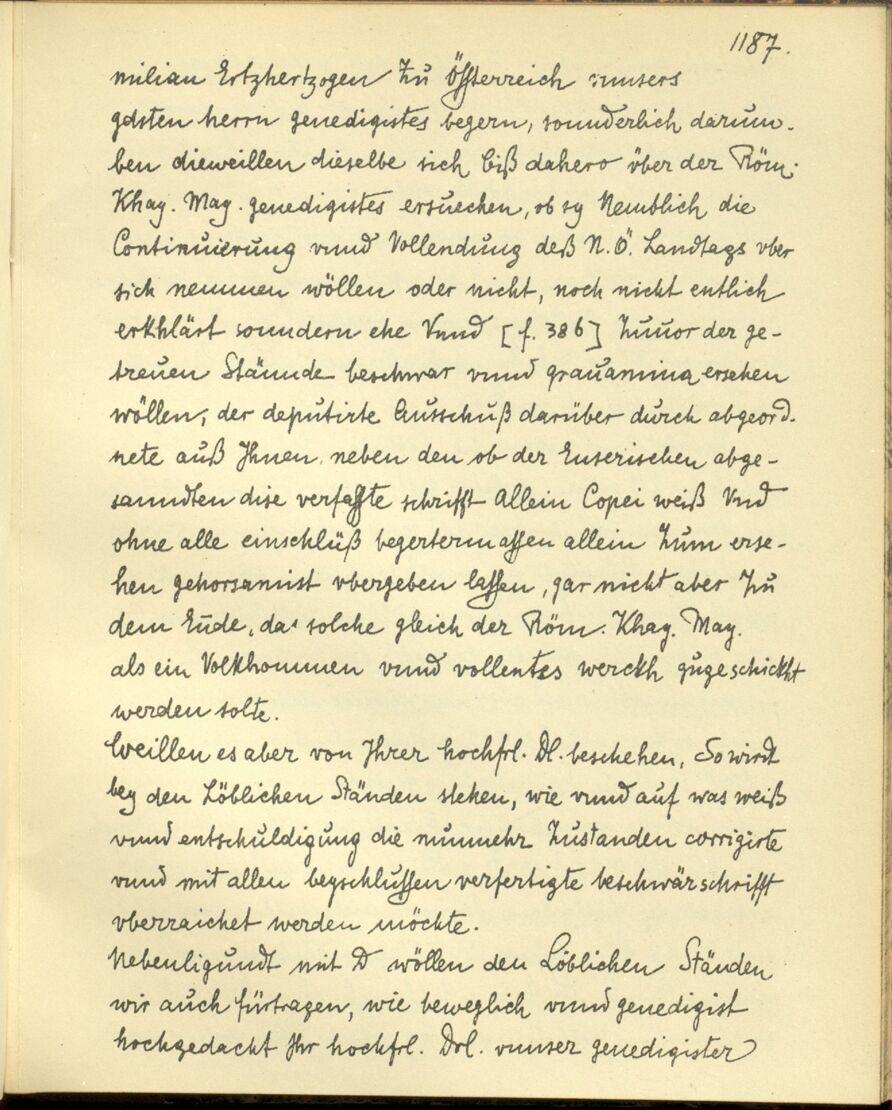 1187.
milian Ertzhertzogen zu Össterreich vnnsers
gdsten herrn genedigistes begern, sonnderlich darum-
ben dieweillen dieselbe sich biß dahero über der Röm.
Khay. May. genedigistes ersuechen, ob sy Nemblich die
Continuierung vnnd Vollendung deß N. Ö. Landtags vber
sich nemmen wöllen oder nicht, noch nicht entlich
erkhlärt sonndern ehe Vnnd [f. 386] zuuor der ge-
treuen Stännde beschwar vnnd grauamina ersehen
wöllen, der deputirte Ausschuß darüber durch abgeord-
nete auß Ihnen neben den ob der Enserischen abge-
sanndten dise verfasste schrifft Allein Copei weiß Vnd
ohne alle einschlüß begertermassen allein zum erse-
hen gehorsamist vbergeben lassen, gar nicht aber zu
dem Ende, das solche gleich der Röm. Khay. May.
als ein Volkhommen vnnd vollentes werckh zugeschickht
werden solte.
Weillen es aber von Ihrer hochfrl. Dl. beschehen, So wirdt
bey den Löblichen Ständen stehen, wie vnnd auf was weiß
vnnd entschuldigung die nunmehr zustanden corrigirte
vnnd mit allen beyschlussen verfertigte beschwärschrifft
vberraichet werden möchte.
Nebenligundt mit D wöllen den Löblichen Ständen
wir auch fürtragen, wie beweglich vnnd genedigist
hochgedacht Ihr hochfrl. Drl. vnnser genedigister